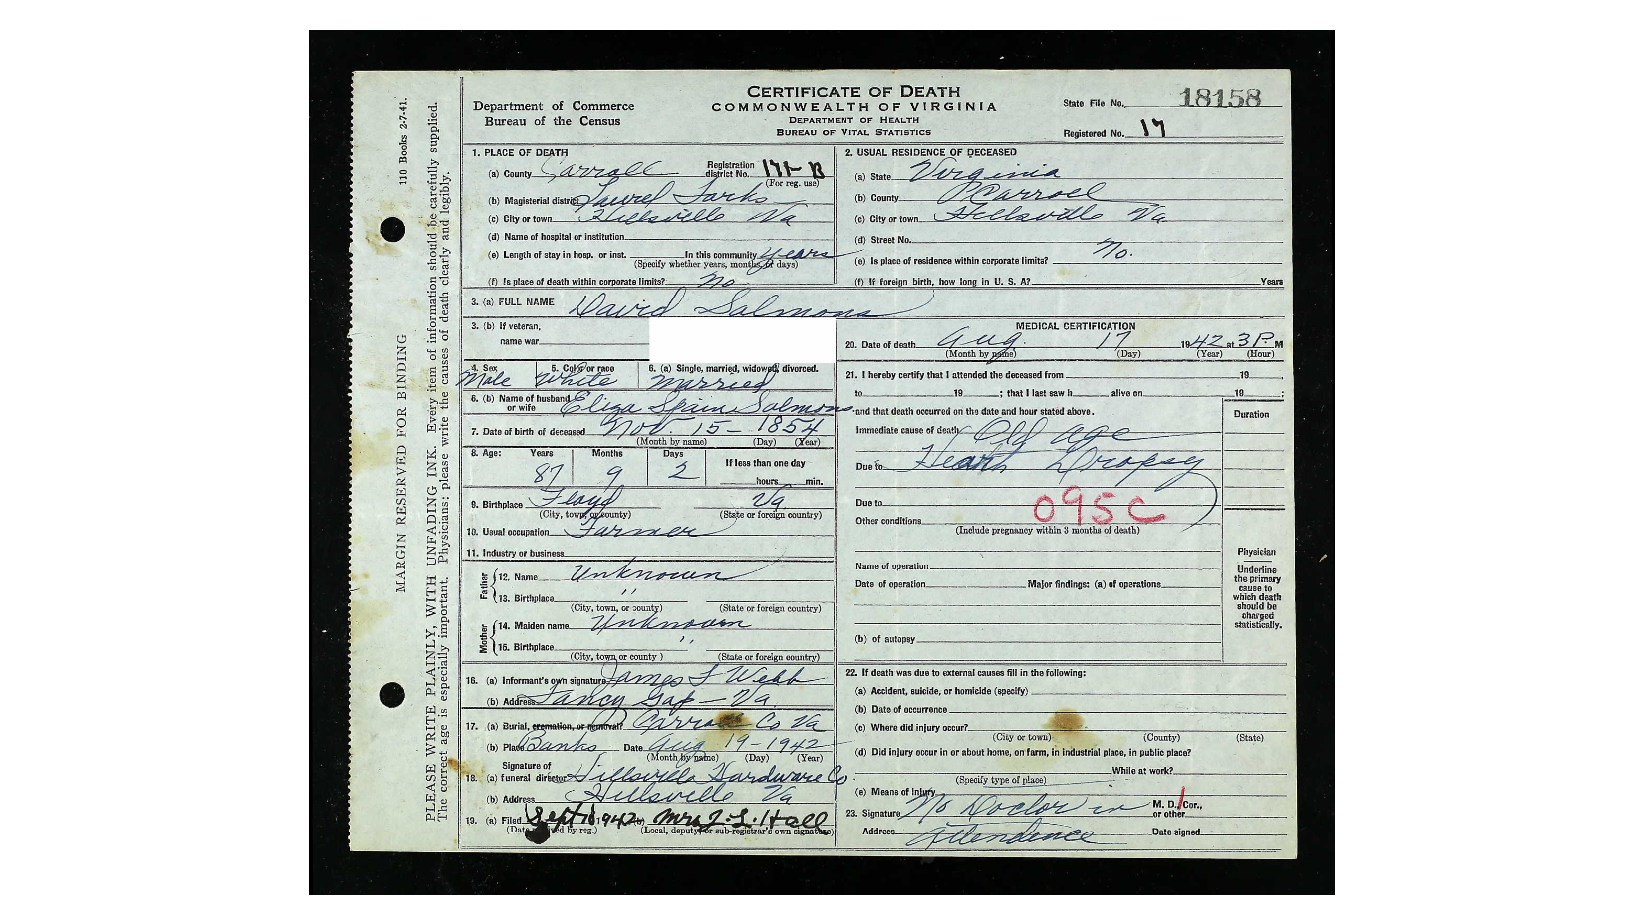 110 Books 2-7-41.
MARGIN RESERVED FOR BINDING
PLEASE WRITE PLAINLY, WITH UNFADING INK. Every item of information should be carefully supplied.
The correct age is especially important. Physicians: please write the causes of death clearly and legibly.
Department of Commerce
Bureau of the Census
CERTIFICATE OF DEATH
COMMONWEALTH OF VIRGINIA
DEPARTMENT OF HEALTH
BUREAU OF VITAL STATISTICS
State File No. 18158
Registered No. 17
1. PLACE OF DEATH
(a) County Carroll Registration district No. 171-B
(For reg. use)
(b) Magisterial district Laurel Forks
(c) City or town Hillsville Va
(d) Name of hospital or institution
(e) Length of stay in hosp. or inst. In this community years
(Specify whether years, months, or days)
(f) Is place of death within corporate limits? No
2. USUAL RESIDENCE OF DECEASED
(a) State Virginia
(b) County Carroll
(c) City or town Hillsville Va.
(d) Street No.
(e) Is place of residence within corporate limits? No.
(f) If foreign birth, how long in U. S. A? Years
3. (a) FULL NAME David Salmons
3. (b) If veteran,
name war
4. Sex 5. Color or race 6. (a) Single, married, widowed, divorced.
Male White Married
6. (b) Name of husband or wife Eliza Spain Salmons
7. Date of birth of deceased Nov. 15 - 1854
(Month by name) (Day) (Year)
8. Age: Years Months Days If less than one day
87 9 2 hours min.
9. Birthplace Floyd Va
(City, town, or county) (State or foreign country)
10. Usual occupation Farmer
11. Industry or business
Father
12. Name Unknown
13. Birthplace "
(City, town, or county) (State or foreign country)
Mother
14. Maiden name Unknown
15. Birthplace "
(City, town or county ) (State or foreign country)
16. (a) Informant's own signature James L Webb
(b) Address Fancy Gap - Va.
17. (a) Burial, cremation, or removal? Carroll Co Va
(b) Place Banks Date Aug 19-1942
(Month by name) (Day) (Year)
18. Signature of
(a) funeral director Hillsville Hardware Co
(b) Address Hillsville Va
19. (a) Filed Sept 1942 (b) Mrs J. L. Hall
(Date received by reg.) (Local, deputy or sub-registrar's own signature)
MEDICAL CERTIFICATION
20. Date of death Aug. 17 1942 at 3 P. M
(Month by name) (Day) (Year) (Hour)
21. I hereby certify that I attended the deceased from 19
to 19 ; that I last saw h alive on 19 ;
and that death occurred on the date and hour stated above.
Duration
Immediate cause of death Old age
Due to Heart Dropsy
Due to
095C
Other conditions
(Include pregnancy within 3 months of death)
Name of operation
Date of operation Major findings: (a) of operations
(b) of autopsy
Physician
Underline
the primary
cause to
which death
should be
charged
statistically.
22. If death was due to external causes fill in the following:
(a) Accident, suicide, or homicide (specify)
(b) Date of occurrence
(c) Where did injury occur?
(City or town) (County) (State)
(d) Did injury occur in or about home, on farm, in industrial place, in public place?
While at work?
(Specify type of place)
(e) Means of injury
23. Signature No Doctor in M. D./Cor., or other
Address Attendence Date signed